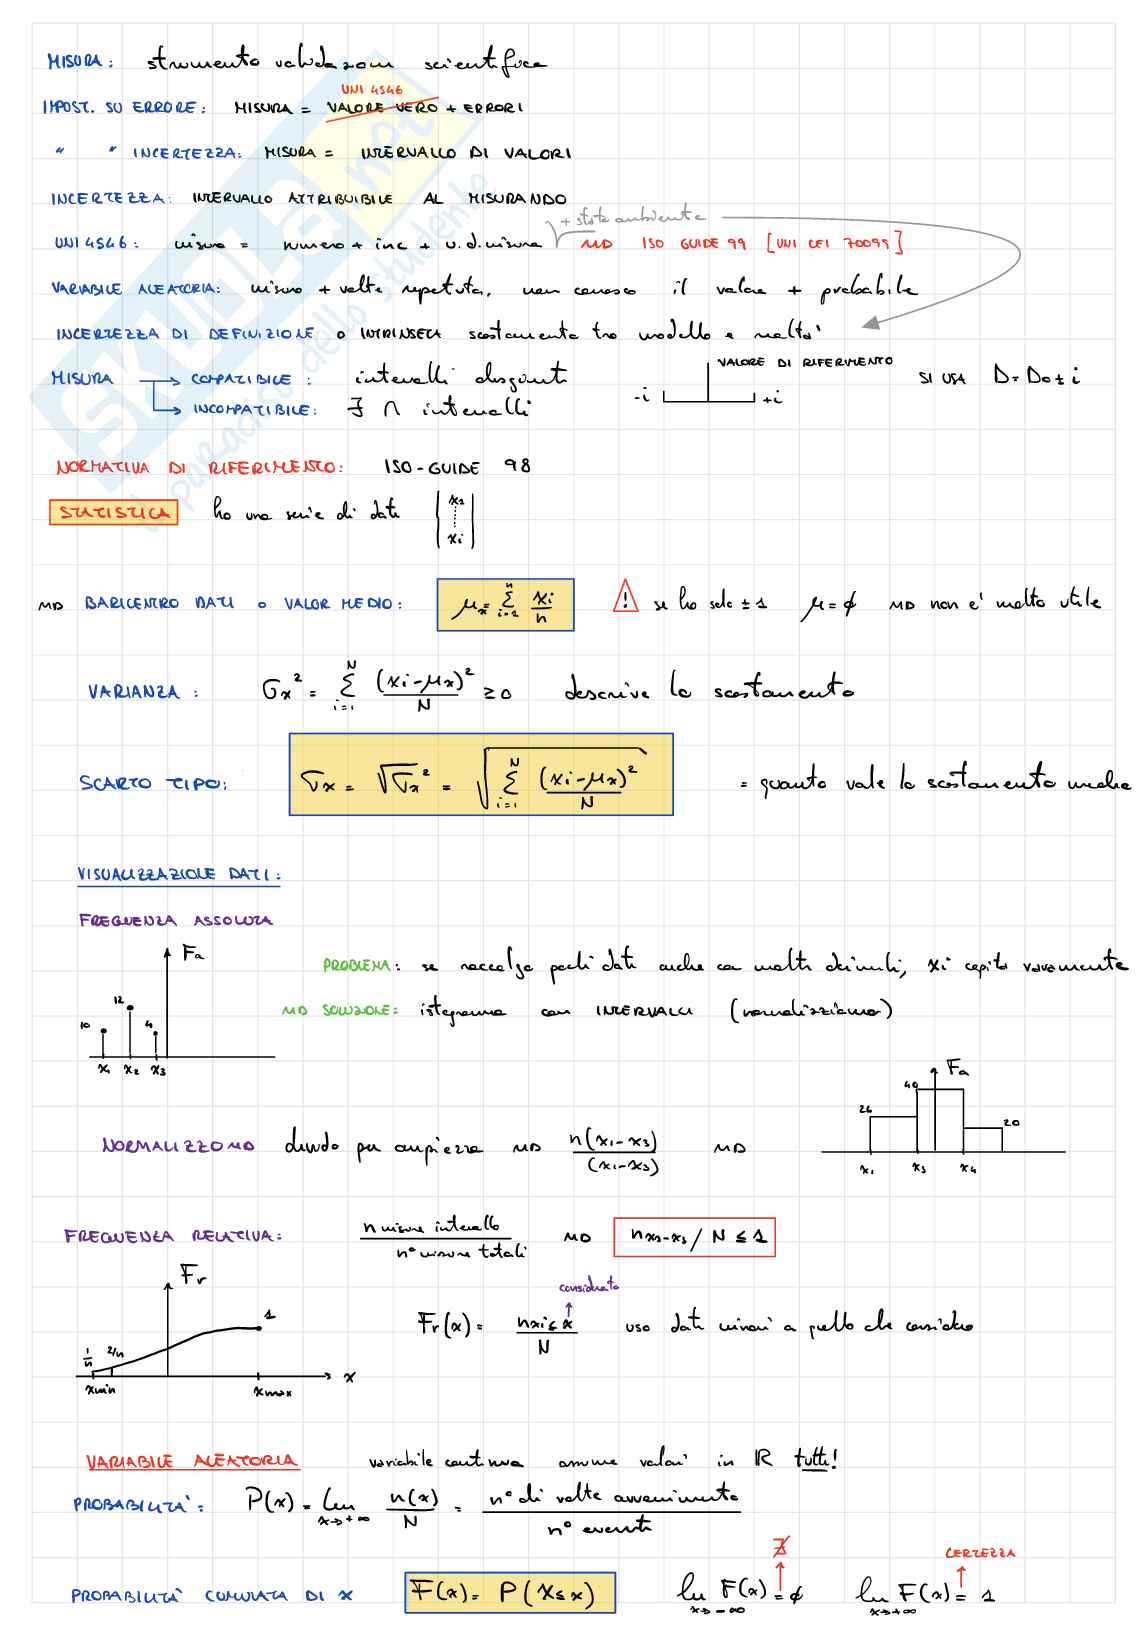 MISURA: strumento validazione scientifica
UNI 4546
IMPOST. SU ERRORE: MISURA = VALORE VERO + ERRORI
" " INCERTEZZA: MISURA = INTERVALLO DI VALORI
INCERTEZZA: INTERVALLO ATTRIBUIBILE AL MISURANDO
+ stato ambiente
UNI 4546: misura = numero + inc + u.d.misura → ISO GUIDE 99 [UNI CEI 70099]
VARIABILE ALEATORIA: misuro + volte ripetuta, non conosco il valore + probabile
INCERTEZZA DI DEFINIZIONE o INTRINSECA scostamento tra modello e realtà
MISURA → COMPATIBILE: intervalli disgiunti
→ INCOMPATIBILE: ∃ ∩ intervalli
VALORE DI RIFERIMENTO
-i +i
SI USA D = D0 ± i
NORMATIVA DI RIFERIMENTO: ISO-GUIDE 98
STATISTICA ho una serie di dati | x1 ⋮ xi |
→ BARICENTRO DATI o VALOR MEDIO: μx = Σ i=1 n xi/n ! se ho solo ±1 μ = ϕ → non è molto utile
VARIANZA: σx² = Σ i=1 N (xi-μx)²/N ≥ 0 descrive lo scostamento
SCARTO TIPO: σx = √σx² = √Σ i=1 N (xi-μx)²/N = quanto vale lo scostamento medio
VISUALIZZAZIONE DATI:
FREQUENZA ASSOLUTA
Fa
10 12 4
x1 x2 x3
PROBLEMA: se raccolgo pochi dati anche con molti decimali, xi capita raramente
→ SOLUZIONE: istogramma con INTERVALLI (normalizziamo)
Fa
26 40 20
x1 x3 x4
NORMALIZZO → divido per ampiezza → n(x1-x3)/(x1-x3) →
FREQUENZA RELATIVA: n misure intervallo / n° misure totali → nx1-x3 / N ≤ 1
Fr
1
1/n 2/n
xmin xmax x
considerato
Fr(x) = nxi≤x / N uso dati minori a quello che considero
VARIABILE ALEATORIA variabile continua assume valori in ℝ tutti!
PROBABILITÀ: P(x) = lim x→+∞ n(x)/N = n° di volte avvenimento / n° eventi
∄ CERTEZZA
PROBABILITÀ CUMULATA DI X F(x) = P(X≤x) lim x→-∞ F(x) = ϕ lim x→+∞ F(x) = 1
SKUOLA.net
il paradiso dello studente